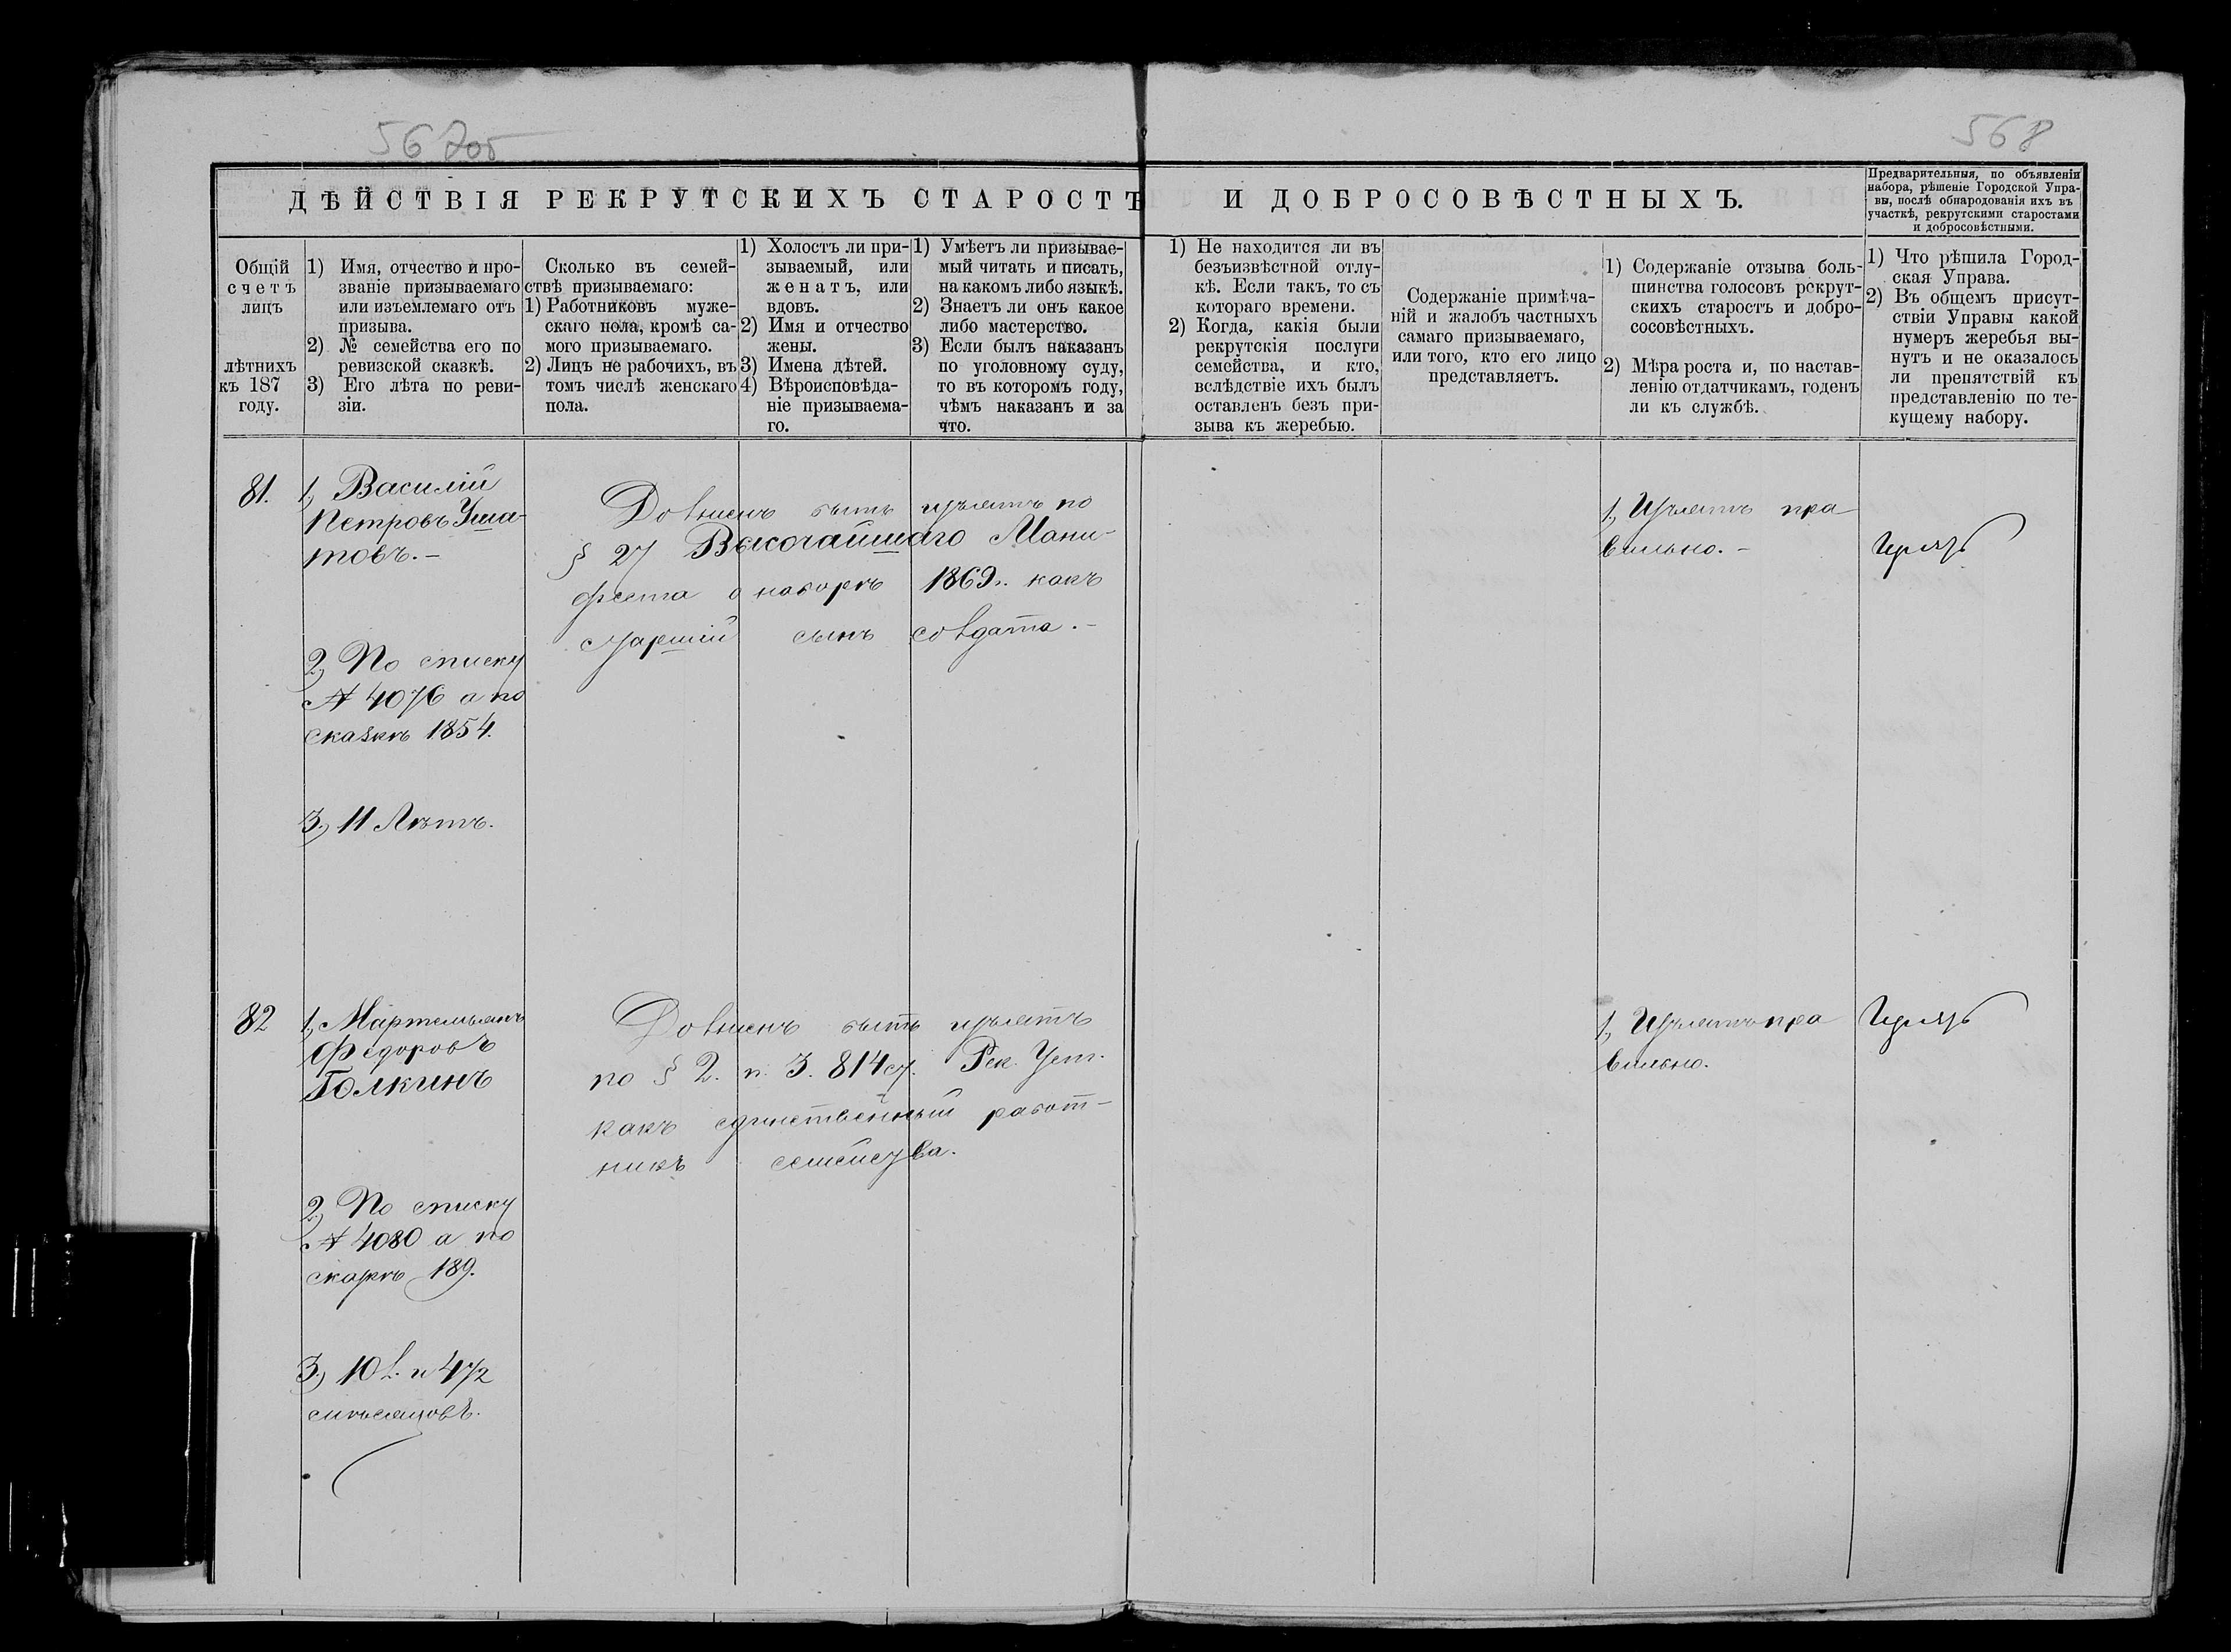 567об
568
ДѢЙСТВІЯ РЕКРУТСКИХЪ СТАРОСТЪ И ДОБРОСОВѢСТНЫХЪ.
Предварительныя, по объявленіи
набора, рѣшеніе Городской Упра-
вы, послѣ обнародованія ихъ въ
участкѣ, рекрутскими старостами
и добросовѣстными.
Общій
счетъ
лицъ
лѣтнихъ
къ 187
году.
1) Имя, отчество и про-
званіе призываемаго
или изъемлемаго отъ
призыва.
2) № семейства его по
ревизской сказкѣ.
3) Его лѣта по реви-
зіи.
Сколько въ семей-
ствѣ призываемаго:
1) Работниковъ муже-
скаго пола, кромѣ са-
мого призываемаго.
2) Лицъ не рабочихъ, въ
томъ числѣ женскаго
пола.
1) Холостъ ли при-
зываемый, или
женатъ, или
вдовъ.
2) Имя и отчество
жены.
3) Имена дѣтей.
4) Вѣроисповѣда-
ніе призываема-
го.
1) Умѣетъ ли призывае-
мый читать и писать,
на какомъ либо языкѣ.
2) Знаетъ ли онъ какое
либо мастерство.
3) Если былъ наказанъ
по уголовному суду,
то въ которомъ году,
чѣмъ наказанъ и за
что.
1) Не находится ли въ
безъизвѣстной отлу-
кѣ. Если такъ, то съ
котораго времени.
2) Когда, какія были
рекрутскія послуги
семейства, и кто,
вслѣдствіе ихъ былъ
оставленъ безъ при-
зыва къ жеребью.
Содержаніе примѣча-
ній и жалобъ частныхъ
самаго призываемаго,
или того, кто его лицо
представляетъ.
1) Содержаніе отзыва боль-
шинства голосовъ рекрут-
скихъ старостъ и добро-
сосовѣстныхъ.
2) Мѣра роста и, по настав-
ленію отдатчикамъ, годенъ
ли къ службѣ.
1) Что рѣшила Город-
ская Управа.
2) Въ общемъ присут-
ствіи Управы какой
нумеръ жеребья вы-
нутъ и не оказалось
ли препятствій къ
представленію по те-
кущему набору.
81.
1, Василій
Петровъ Ушa-
товъ.-
2, По списку
№ 4076 а по
сказкѣ 1854.
3, 11 Лѣтъ.
Долженъ быть изъятъ по
§ 27 Высочайшаго Мани-
феста о наборѣ 1869г. какъ
старшій сынъ солдата.-
1, Изъятъ пра
вильно.-
82
1, Мартемьянъ
Федоровъ
Голкинъ
2, По списку
№ 4080 а по
сказкѣ 189.
3, 10 л. и 4 1/2
мѣсяцовъ.
Долженъ быть изъятъ
по § 2. п. 3. 814 ст. Рек. Уст.
какъ единственный работ-
никъ семейства.
1, Изъятъ пра
вильно.